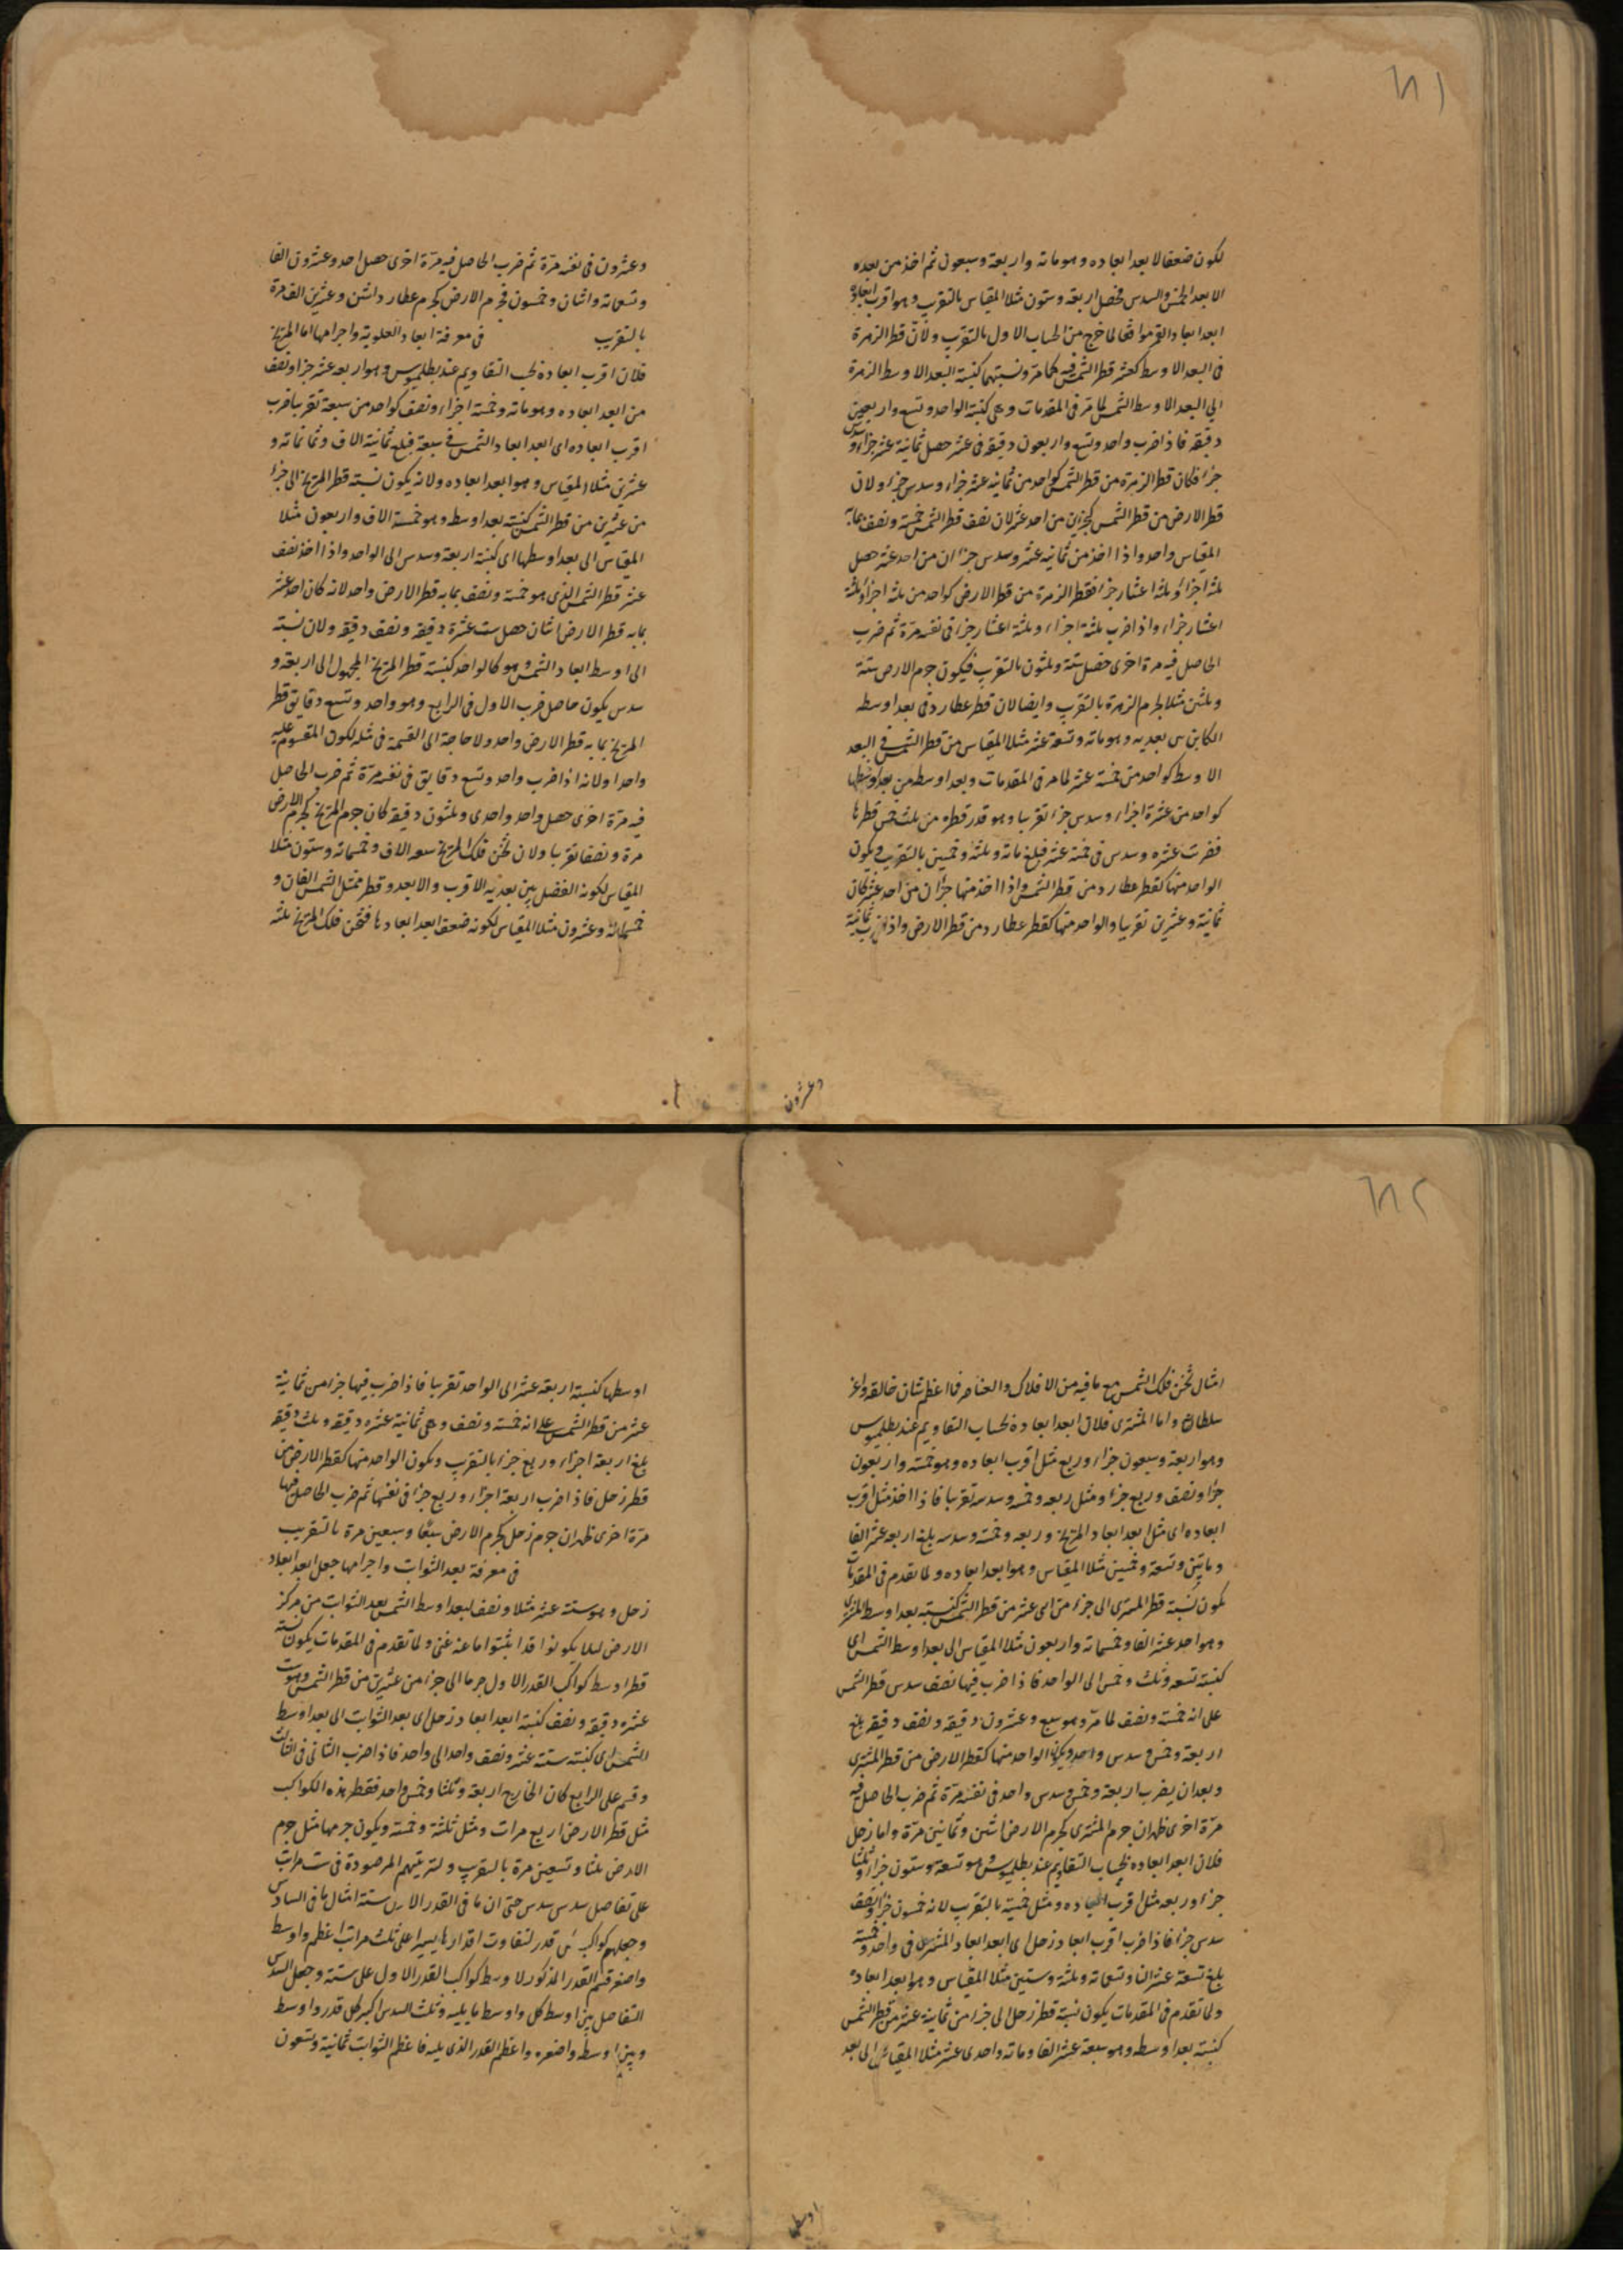 ١٨١
لكون ضعفا لابعد ابعاده وهو مائه واربعة وسبعون ثم اخذ من بعده
الابعد الخمس والسدس فحصل اربعة وستون مثلا المقياس بالتقريب وهو اقرب ابعاده
ابعد ابعاد القمر موافقا لما خرج من الحساب الاول بالتقريب ولان قطر الزهرة
فى البعد الاوسط كعشر قطر الشمس فيه كما مر ونسبتهما كنسبة البعد الاوسط للزهرة
الى البعد الاوسط الشمس لما مر فى المقدمات وهى كنسبة الواحد وتسع واربعين
دقيقه فاذا ضرب واحد وتسع واربعون دقيقه فى عشر حصل ثمانية عشر جزاء وسدس
جزء فكان قطر الزهرة من قطر الشمس كواحد من ثمانيه عشر جزاء وسدس جزء ولان
قطر الارض من قطر الشمس كجزئين من احد عشر لان نصف قطر الشمس خمسة ونصف بمابه
المقياس واحد واذا اخذ من ثمانيه عشر وسدس جزآن من احد عشر حصل
ثلثة اجزاء وثلثة اعشار جزء فقطر الزهرة من قطر الارض كواحد من ثلثه اجزاء وثلثة
اعشار جزاء واذا ضرب ثلثة اجزاء وثلثة اعشار جزء فى نفسه مرّة ثم ضرب
الحاصل فيه مرة اخرى حصل ستة وثلثون بالتقريب فيكون جرم الارض ستة
وثلثين مثلا لجرم الزهرة بالتقريب وايضا لان قطر عطارد فى بعد اوسط
الكاين من بعديه وهو مائه وتسعة عشر مثلا المقياس من قطر الشمس فى البعد
الاوسط كواحد من خمسة عشر لما مر فى المقدمات وبعد اوسطه من بعد اوسطها
كواحد من عشرة اجزاء وسدس جزء تقريبا وهو قدر قطره من ثلث خمس قطرها
فضربت عشره وسدس فى خمسة عشر فبلغ مائة وثلثة وخمسين بالتقريب ويكون
الواحد منها كقطر عطارد من قطر الشمس واذا اخذ منها جزآن من احد عشر كان
ثمانية وعشرين تقريبا والواحد منها كقطر عطارد من قطر الارض واذا ضرب ثمانية
وعشرون
وعشرون فى نفسه مرّة ثم ضرب الحاصل فيه مرّة اخرى حصل احد وعشرون الفا
وتسعمائة واثنان وخمسون فجرم الارض كجرم عطارد اثنين وعشرين الف مرة
بالتقريب فى معرفة ابعاد العلوية واجرامها اما المريخ
فلان اقرب ابعاده لحساب التقاويم عند بطلميوس وهو اربعه عشر جزا ونصف
من ابعد ابعاده وهو مائه وخمسة اجزاء ونصف كواحد من سبعة تقريبا ضرب
اقرب ابعاده اى ابعد ابعاد الشمس فى سبعة فبلغ ثمانية الاف وثمانمائه و
عشرين مثلا المقياس وهو ابعد ابعاده ولانه يكون نسبة قطر المريخ الى جزء
من عشرين من قطر الشمس كنسبة بعد اوسطه وهو خمسة الاف واربعون مثلا
المقياس الى بعد اوسطها اى كنسبة اربعة وسدس الى الواحد واذا اخذ نصف
عشر قطر الشمس الذى هو خمسة ونصف بمابه قطر الارض واحد لانه كان احد عشر
بمابه قطر الارض اثنان حصل ست عشرة دقيقه ونصف دقيقه ولان نسبته
الى اوسط ابعاد الشمس وهو كالواحد كنسبة قطر المريخ المجهول الى اربعة و
سدس يكون حاصل ضرب الاول فى الرابع وهو واحد وتسع دقايق قطر
المريخ بمابه قطر الارض واحد ولا حاجة الى القسمة فى مثله لكون المقسوم عليه
واحدا ولانه اذا ضرب واحد وتسع دقايق فى نفسه مرّة ثم ضرب الحاصل
فيه مرّة اخرى حصل واحد واحدى وثلثون دقيقة كان جرم المريخ كجرم الارض
مرة ونصفا تقريبا ولان ثخن فلك المريخ سبعه الاف وخمسمائه وستون مثلا
المقياس لكونه الفضل بين بعديه الاقرب والابعد وقطر ممثل الشمس الفان و
خمسمائة وعشرون مثلا المقياس لكونه ضعف ابعد ابعادها فثخن فلك المريخ ثلثة
١٨٢
امثال ثخن فلك الشمس مع ما فيه من الافلاك والعناصر فما اعظم شان خالقه واعز
سلطانه واما المشترى فلان ابعد ابعاده لحساب التقاويم عند بطلميوس
وهو اربعة وسبعون جزاء وربع مثل اقرب ابعاده وهو خمسة واربعون
جزا ونصف وربع جزء ومثل ربعه وخمسه وسدسه تقريبا فاذا اخذ مثل اقرب
ابعاده اى مثل ابعد ابعاد المريخ وربعه وخمسه وسدسه بلغ اربعه عشر الفا
ومايتين وتسعة وخمسين مثلا المقياس وهو ابعد ابعاده ولما تقدم فى المقدمات
يكون نسبة قطر المشترى الى جزء من اثنى عشر من قطر الشمس كنسبة بعد اوسط المشترى
وهو احد عشر الفا وخمسمائه واربعون مثلا المقياس الى بعد اوسط الشمس اى
كنسبة تسعه وثلث وخمس الى الواحد فاذا ضرب فيها نصف سدس قطر الشمس
على انه خمسة ونصف لما مرّ وهو سبع وعشرون دقيقه ونصف دقيقه بلغ
اربعة وخمس وسدس واحد ويكون الواحد منها كقطر الارض من قطر المشترى
وبعد ان يضرب اربعة وخمس وسدس واحد فى نفسه مرّة ثم ضرب الحاصل فيه
مرّة اخرى ظهر ان جرم المشترى كجرم الارض اثنين وثمانين مرّة واما زحل
فلان ابعد ابعاده لحساب التقاويم عند بطلميوس وهو تسعة وستون جزاء وثلثا
جزء وربعه مثل اقرب ابعاده ومثل خمسيه بالتقريب لانه خمسون جزا ونصف
سدس جزء فاذا ضرب اقرب ابعاد زحل اى ابعد ابعاد المشترى فى واحد وخمسيه
بلغ تسعة عشر الفا وتسعمائة وثلثة وستين مثلا المقياس وهو ابعد ابعاده
ولما تقدم فى المقدمات يكون نسبة قطر زحل الى جزء من ثمانية عشر من قطر الشمس
كنسبة بعد اوسطه وهو سبعة عشر الفا ومائه واحدى عشر مثلا المقياس الى بعد
اوسطها
اوسطها كنسبة اربعة عشر الى الواحد تقريبا فاذا ضرب فيها جزء من ثمانية
عشر من قطر الشمس على انه خمسة ونصف وهى ثمانية عشره دقيقه وثلث دقيقه
بلغ اربعة اجزاء وربع جزء بالتقريب ويكون الواحد منها كقطر الارض من
قطر زحل فاذا ضرب اربعة اجزاء وربع جزء فى نفسها ثم ضرب الحاصل فيها
مرّة اخرى ظهر ان جرم زحل كجرم الارض سبعا وسبعين مرة بالتقريب
فى معرفة بعد الثوابت واجرامها جعل ابعد ابعاد
زحل وهو ستة عشر مثلا ونصف لبعد اوسط الشمس بعد الثوابت من مركز
الارض لئلا يكونوا قد اثبتوا ما عنه غنى ولما تقدم فى المقدمات يكون نسبة
قطر اوسط كواكب القدر الاول جرما الى جزء من عشرين من قطر الشمس وهو ست
عشره دقيقه ونصف كنسبة ابعد ابعاد زحل اى بعد الثوابت الى بعد اوسط
الشمس اى كنسبة ستة عشر ونصف واحد الى واحد فاذا ضرب الثانى فى الثالث
وقسم على الرابع كان الخارج اربعة وثلثا وخمس واحد فقطر هذه الكواكب
مثل قطر الارض اربع مرات ومثل ثلثه وخمسه ويكون جرمها مثل جرم
الارض ثلثا وتسعين مرة بالتقريب ولترتيبهم المرصودة فى ست مراتب
على تفاضل سدس سدس حتى ان ما فى القدر الاول ستة امثال ما فى السادس
وجعلهم كواكب كل قدر لتفاوت اقدارها يسيرا على ثلث مراتب اعظم واوسط
واصغر قسم القدر المذكور لاوسط كواكب القدر الاول على ستة وجعل السدس
التفاضل بين اوسط كل واوسط ما يليه وثلث السدس اكبر كل قدر واوسط
وبين اوسطه واصغره واعظم القدر الذى يليه فاعظم الثوابت ثمانية وتسعون